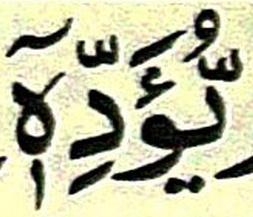 يُّؤَدِّهٖۤ